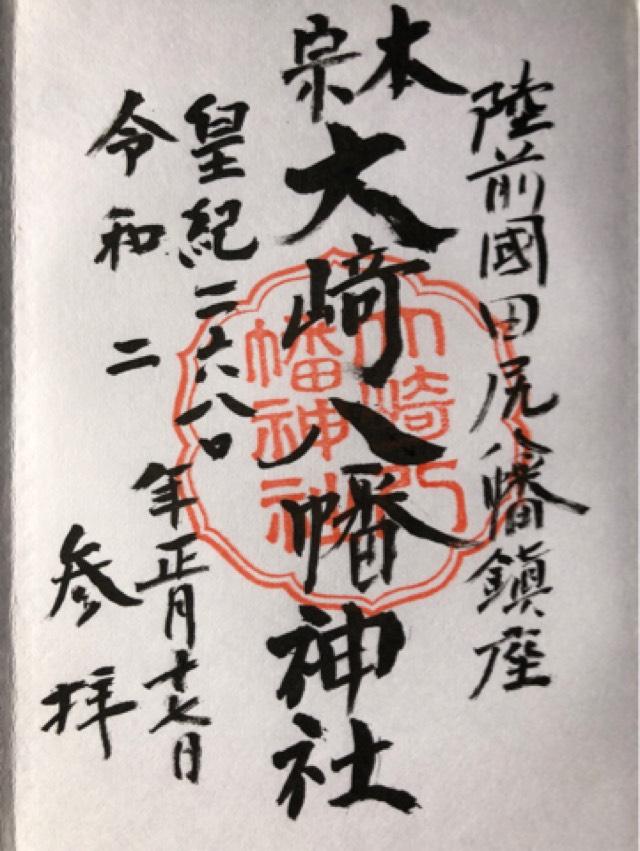 陸前國田尻八幡鎮座
本宗
大崎八幡神社
大崎八
幡神社
皇紀二六八〇
令和二
年正月十七日
参拝